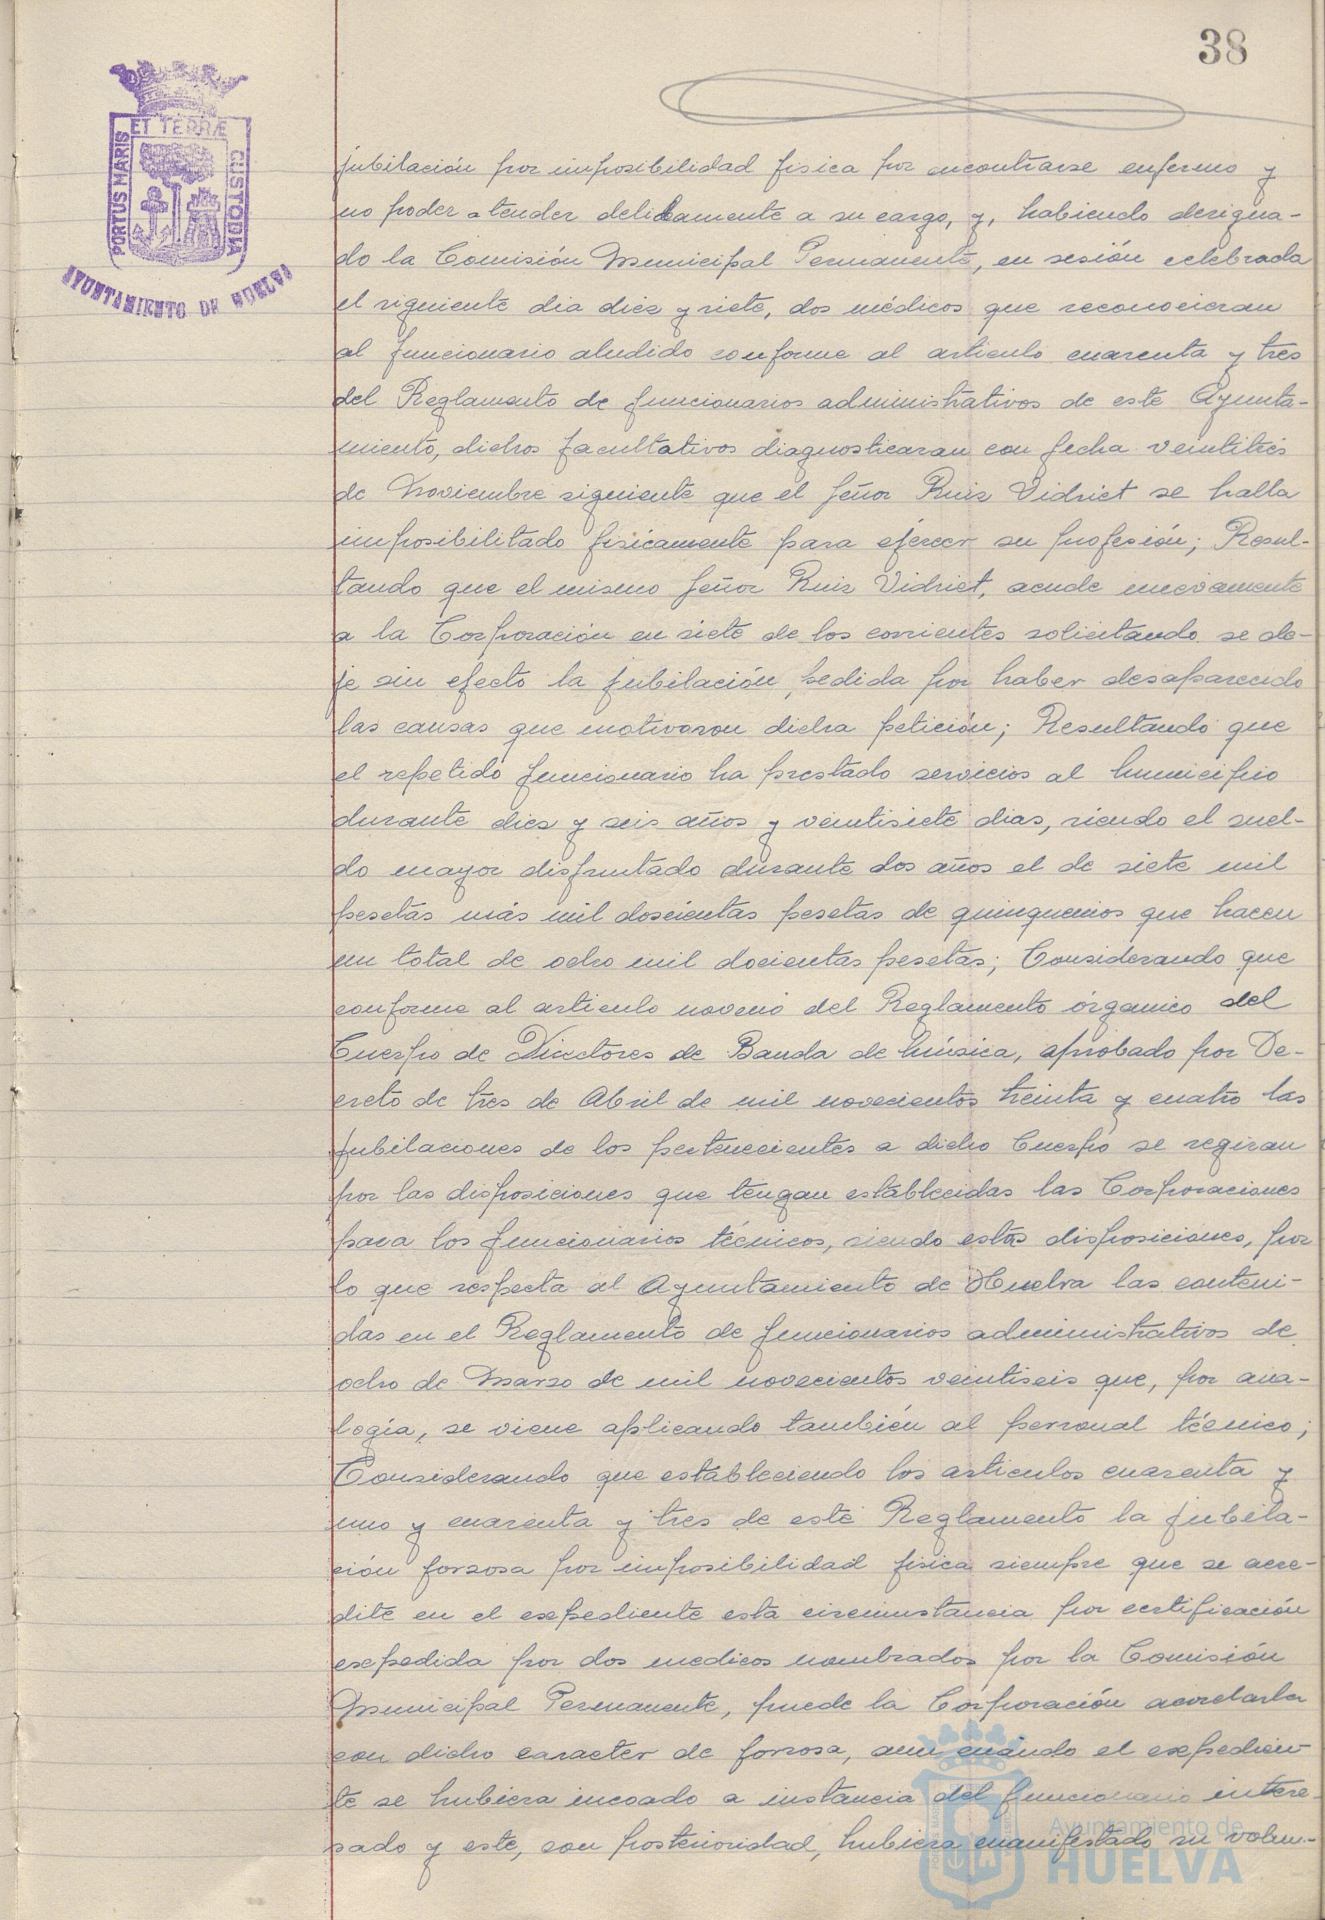 38
ET TERRÆ
PORTUS MARIS
CUSTODIA
AYUNTAMIENTO DE HUELVA
jubilación por imposibilidad fisica por encontrarse enfermo y
no poder atender debidamente a su cargo, y, habiendo designa-
do la Comisión Municipal Permanente, en sesión celebrada
el siguiente dia diez y siete, dos médicos que reconocieran
al funcionario aludido conforme al articulo cuarenta y tres
del Reglamento de funcionarios administrativos de este Ayunta-
miento, dichos facultativos diagnosticaran con fecha veintitrés
de Noviembre siguiente que el Señor Ruiz Vidriet se halla
imposibilitado fisicamente para ejercer su profesión; Resul-
tando que el mismo Señor Ruiz Vidriet, acude nuevamente
a la Corporación en siete de los corrientes solicitando se de-
je sin efecto la jubilación pedida por haber desaparecido
las causas que motivaron dicha petición; Resultando que
el repetido funcionario ha prestado servicios al Municipio
durante diez y seis años y veintisiete dias, siendo el suel-
do mayor disfrutado durante dos años el de siete mil
pesetas más mil doscientas pesetas de quinquenios que hacen
un total de ocho mil docientas pesetas; Considerando que
conforme al articulo noveno del Reglamento órganico del
Cuerpo de Directores de Banda de Música, aprobado por De-
creto de tres de Abril de mil novecientos treinta y cuatro las
jubilaciones de los pertenecientes a dicho Cuerpo se regiran
por las disposiciones que tengan establecidas las Corporaciones
para los funcionarios técnicos, siendo estas disposiciones, por
lo que respecta al Ayuntamiento de Huelva las conteni-
das en el Reglamento de funcionarios administrativos de
ocho de Marzo de mil novecientos veintiseis que, por ana-
logía, se viene aplicando también al personal técnico;
Considerando que estableciendo los articulos cuarenta y
uno y cuarenta y tres de este Reglamento la jubila-
ción forzosa por imposibilidad fisica siempre que se acre-
dite en el expediente esta circunstancia por certificación
expedida por dos medicos nombrados por la Comisión
Municipal Permanente, puede la Corporación acordarla
con dicho caracter de forzosa, aun cuando el expedien-
te se hubiera incoado a instancia del funcionario intere-
sado y este, con posterioridad, hubiera manifestado su volun-
Ayuntamiento de
HUELVA